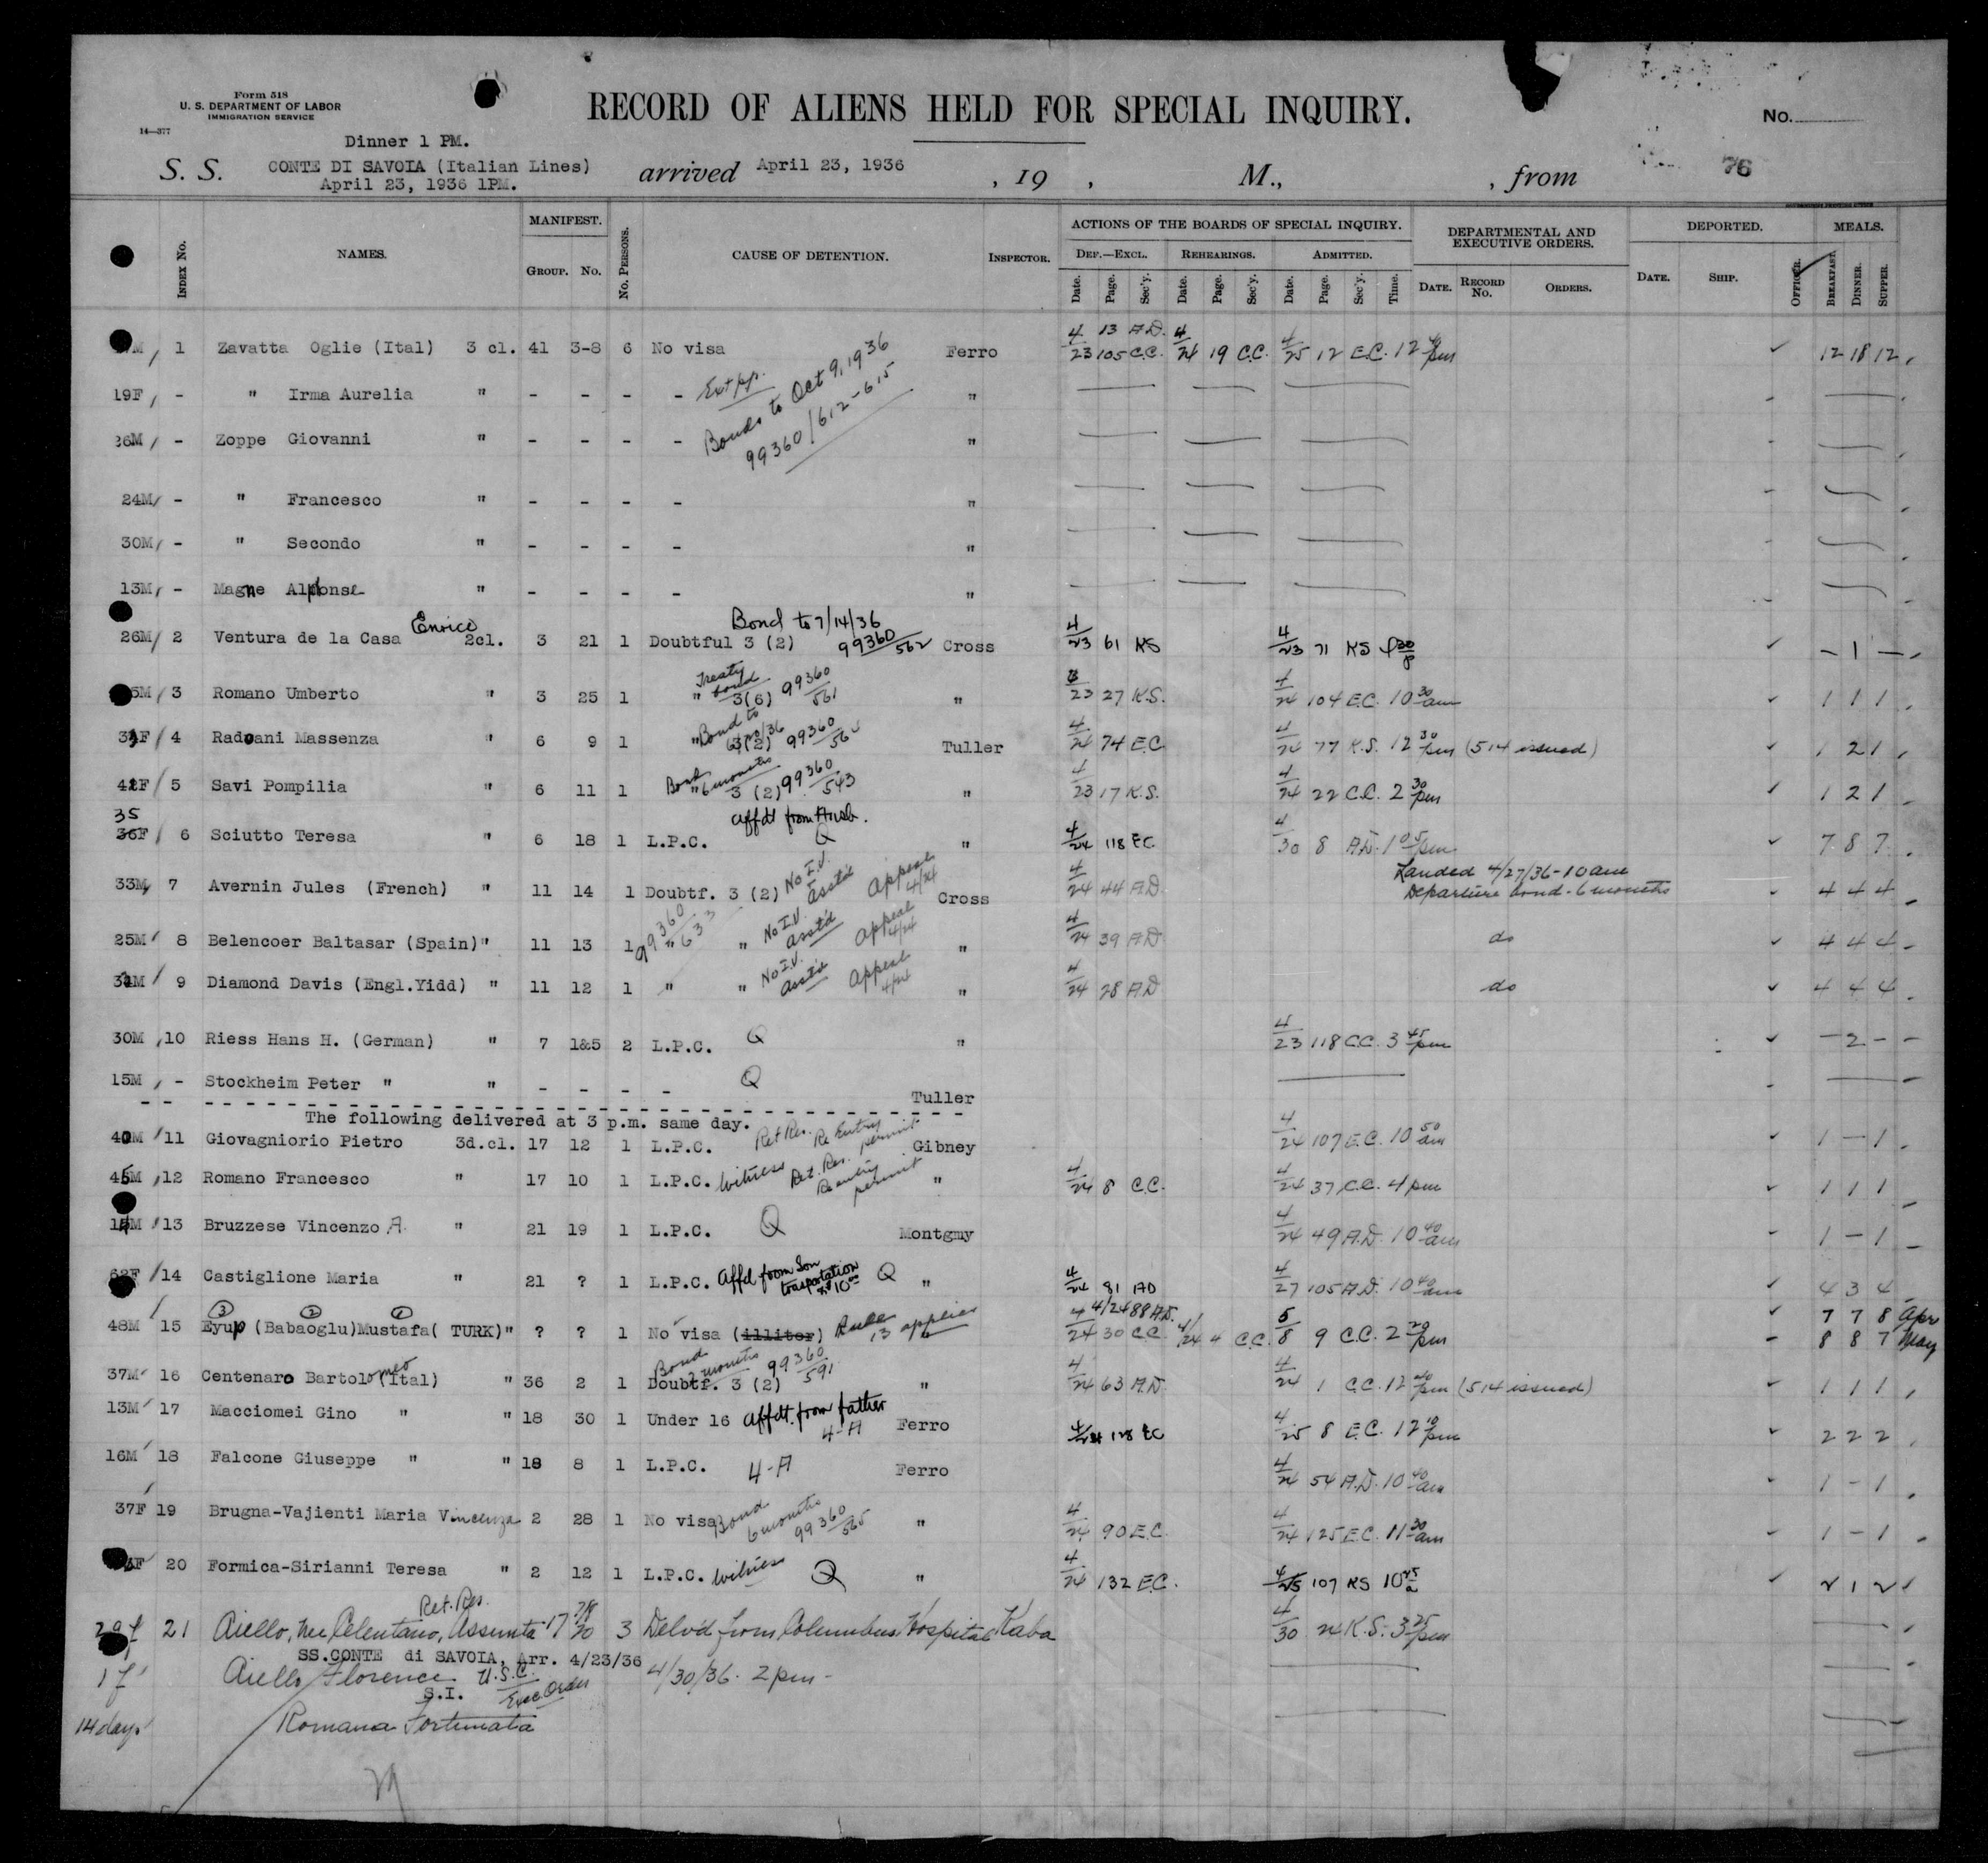 Form 518
U. S. DEPARTMENT OF LABOR
IMMIGRATION SERVICE
14—377
RECORD OF ALIENS HELD FOR SPECIAL INQUIRY.
No.
Dinner 1 PM.
S. S. CONTE DI SAVOIA (Italian Lines) arrived April 23, 1936 , 19 , M., , from 76
April 23, 1936 1PM.
INDEX No. NAMES. MANIFEST. GROUP. No. No. PERSONS. CAUSE OF DETENTION. INSPECTOR. ACTIONS OF THE BOARDS OF SPECIAL INQUIRY. DEPARTMENTAL AND EXECUTIVE ORDERS. DEPORTED. MEALS.
DEF.—EXCL. REHEARINGS. ADMITTED.
Date. Page. Sec'y. Date. Page. Sec'y. Date. Page. Sec'y. Time. DATE. RECORD No. ORDERS. DATE. SHIP. OFFICER. BREAKFAST. DINNER. SUPPER.
1 Zavatta Oglie (Ital) 3 cl. 41 3-8 6 No visa Ferro 4/23 13 A.D. 105 C.C. 4/24 19 C.C. 4/25 12 E.C. 12 pm 12 18 12
Ext pp.
Bonds to Oct 9, 1936
99360/612-615
19F - " Irma Aurelia " - - - - "
26M - Zoppe Giovanni " - - - - "
24M - " Francesco " - - - - "
30M - " Secondo " - - - - "
13M - Magne Alphonse " - - - - "
26M 2 Ventura de la Casa Enrico 2cl. 3 21 1 Doubtful 3 (2) Bond to 7/14/36 99360/562 Cross 4/23 61 KS 4/23 71 KS - 1 -
3 Romano Umberto " 3 25 1 " 3(6) Treaty bond 99360/561 " 23 27 K.S. 4/24 104 E.C. 10 30 am 1 1 1
4 Radoani Massenza " 6 9 1 " 3(2) Bond to 99360 Tuller 4/24 74 E.C. 4/24 77 K.S. 12 30 pm (514 issued) 1 2 1
42F 5 Savi Pompilia " 6 11 1 " 3 (2) Bond 6 months 99360/543 " 4/23 17 K.S. 4/24 22 C.C. 2 30 pm 1 2 1
35
36F 6 Sciutto Teresa " 6 18 1 L.P.C. affdt from Husb. Q " 4/24 118 EC 4/30 8 A.D. 1 05 pm 7 8 7
33M 7 Avernin Jules (French) " 11 14 1 Doubtf. 3 (2) No I.V. Asst'd Appeal 4/24 Cross 4/24 44 A.D. Landed 4/27/36-10am Departure bond-6 months 4 4 4
25M 8 Belencoer Baltasar (Spain)" 11 13 1 " " 99360/633 No I.V. Asst'd Appeal 4/24 " 4/24 39 A.D. do 4 4 4
9 Diamond Davis (Engl.Yidd) " 11 12 1 " " No I.V. Asst'd Appeal 4/24 " 4/24 28 A.D. do 4 4 4
30M 10 Riess Hans H. (German) " 7 1&5 2 L.P.C. Q " 4/23 118 C.C. 3 45 pm - 2 -
15M - Stockheim Peter " " - - - - Q Tuller
The following delivered at 3 p.m. same day.
11 Giovagniorio Pietro 3d.cl. 17 12 1 L.P.C. Ret Res. Re Entry permit Gibney 4/24 107 E.C. 10 50 am 1 - 1
45M 12 Romano Francesco " 17 10 1 L.P.C. Witness Ret. Res. Reentry permit " 4/24 8 C.C. 4/24 37 C.C. 4 pm 1 1 1
13 Bruzzese Vincenzo A. " 21 19 1 L.P.C. Q Montgmy 4/24 49 A.D. 10 40 am 1 - 1
14 Castiglione Maria " 21 ? 1 L.P.C. Affd from Son trasportation $10.00 Q " 4/24 81 AD 4/27 105 A.D. 10 40 am 4 3 4
3 2 1
48M 15 Eyup (Babaoglu)Mustafa( TURK)" ? ? 1 No visa (illiter) Rule 13 applies 4/24 88 A.D. 4/24 30 C.C. 4/24 4 C.C. 5/8 9 C.C. 2 20 pm 7 7 8 Apr
8 8 7 May
37M 16 Centenaro Bartolomeo (Ital) " 36 2 1 Doubtf. 3 (2) Bond 2 months 99360/591 " 4/24 63 A.D. 4/24 1 C.C. 12 40 pm (514 issued) 1 1 1
13M 17 Macciomei Gino " " 18 30 1 Under 16 Affdt. from father 4-A Ferro 4/24 128 EC 4/25 8 E.C. 12 10 pm 2 2 2
16M 18 Falcone Giuseppe " " 18 8 1 L.P.C. 4-A Ferro 4/24 54 A.D. 10 40 am 1 - 1
37F 19 Brugna-Vajienti Maria Vincenza 2 28 1 No visa Bond 6 months 99360/565 " 4/24 90 E.C. 4/24 125 E.C. 11 30 am 1 - 1
20 Formica-Sirianni Teresa " 2 12 1 L.P.C. Witness Q " 4/24 132 E.C. 4/25 107 KS 10 45 a 2 1 2
Ret. Res.
29f 21 Aiello, nee Celentano, Assunta 17 30 3 Delv'd from Columbus Hospital Kaba 4/30 24 K.S. 3 25 pm
SS.CONTE di SAVOIA, Arr. 4/23/36
1f Aiello Florence U.S.C. 4/30/36. 2 pm -
S.I. Exec Order
14 days Romana Fortunata